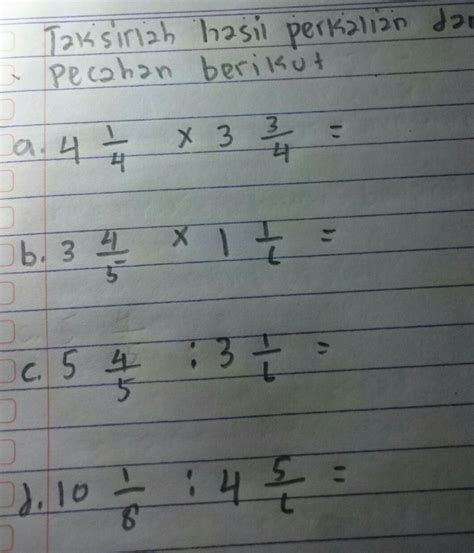 Taksirlah hasil perkalian dan
pecahan berikut
a. 4 1/4 x 3 3/4 =
b. 3 4/5 x 1 1/6 =
c. 5 4/5 : 3 1/6 =
d. 10 1/8 : 4 5/6 =